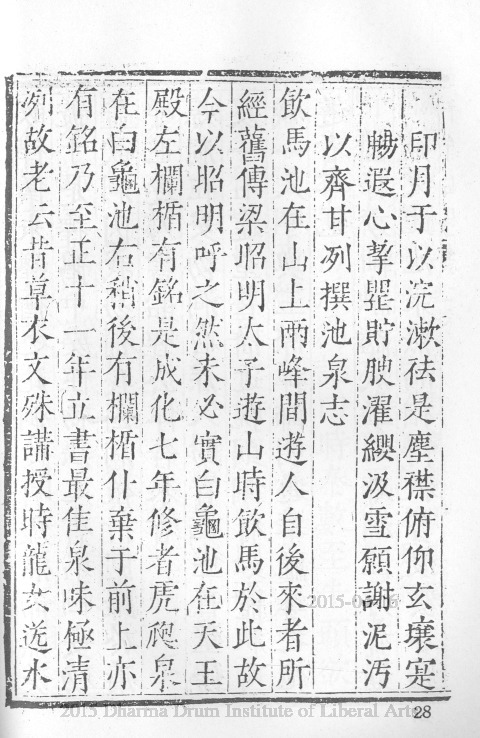 印月于以浣漱祛是塵襟俯仰玄壤寔
暢遐心挈罌貯腴濯纓汲雪願謝泥汚
以齊甘冽撰池泉志
飲馬池在山上兩峰間遊人自後來者所
經舊傳梁昭明太子遊山時飲馬於此故
今以昭明呼之然未必實白龜池在天王
殿左欄楯有銘是成化七年修者虎爬泉
在白龜池右稍後有欄楯什棄于前上亦
有銘乃至正十一年立書最佳泉味極清
冽故老云昔草衣文殊講授時龍女送水
28
2015 Dharma Drum Institute of Liberal Arts